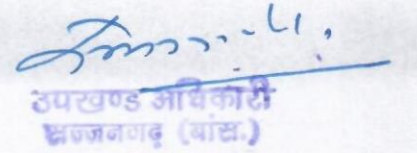 उपखण्ड अधिकारी
सज्जनगढ़ (बांस.)